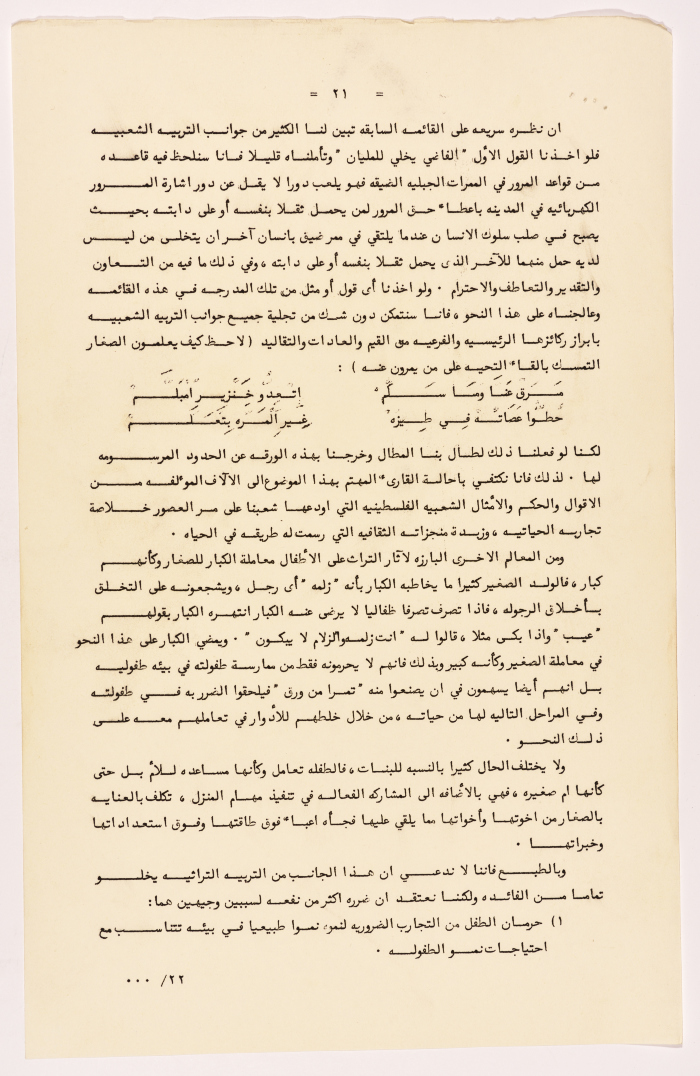 = ٢١ =
ان نظره سريعه على القائمه السابقه تبين لنا الكثير من جوانب التربيه الشعبيه
فلو اخذنا القول الأول " الفاضي يخلي للمليان " وتأملناه قليلا فانا سنلحظ فيه قاعده
من قواعد المرور في الممرات الجبليه الضيقه فهو يلعب دورا لا يقل عن دور اشارة المرور
الكهربائيه في المدينه باعطاء حق المرور لمن يحمل ثقلا بنفسه أو على دابته بحيث
يصبح في صلب سلوك الانسان عندما يلتقي في ممر ضيق بانسان آخر ان يتخلى من ليس
لديه حمل منهما للآخر الذى يحمل ثقلا بنفسه أو على دابته ، وفي ذلك ما فيه من التعاون
والتقدير والتعاطف والاحترام ٠ ولو اخذنا أى قول أو مثل من تلك المدرجه في هذه القائمه
وعالجناه على هذا النحو ، فانا سنتمكن دون شك من تجلية جميع جوانب التربيه الشعبيه
بابراز ركائزها الرئيسيه والفرعيه من القيم والعادات والتقاليد ( لاحظ كيف يعلمون الصغار
التمسك بالقاء التحيه على من يمرون عنه ) :
مَرَق عَنا وما سَلَّم اتعدُّو خنزير امبلَّم
حُطّوا عَصاتُه في طيزه غير المره بتعلَّم
لكنا لو فعلنا ذلك لطال بنا المطال وخرجنا بهذه الورقه عن الحدود المرسومه
لها ٠ لذلك فانا نكتفي باحالة القارىء المهتم بهذا الموضوع الى الآلاف المؤلفه من
الاقوال والحكم والامثال الشعبيه الفلسطينيه التي اودعها شعبنا على مر العصور خلاصة
تجاربه الحياتيه ، وزبدة منجزاته الثقافيه التي رسمت له طريقه في الحياه ٠
ومن المعالم الاخرى البارزه لآثار التراث على الأطفال معاملة الكبار للصغار وكأنهم
كبار ، فالولد الصغير كثيرا ما يخاطبه الكبار بأنه " زلمه " أى رجل ، ويشجعونه على التخلق
بأخلاق الرجوله ، فاذا تصرف تصرفا طفاليا لا يرضى عنه الكبار انتهره الكبار بقولهم
" عيب " واذا بكى مثلا ، قالوا له " انت زلمه والزلام لا ييكون " ٠ ويمضي الكبار على هذا النحو
في معاملة الصغير وكأنه كبير وبذلك فانهم لا يحرمونه فقط من ممارسة طفولته في بيئه طفوليه
بل انهم أيضا يسهمون في ان يصنعوا منه " نمرا من ورق " فيلحقوا الضرر به في طفولته
وفي المراحل التاليه لها من حياته ، من خلال خلطهم للأدوار في تعاملهم معه على
ذلك النحو ٠
ولا يختلف الحال كثيرا بالنسبه للبنات ، فالطفله تعامل وكأنها مساعده للأم بل حتى
كأنها ام صغيره ، فهي بالأضافه الى المشاركه الفعاله في تنفيذ مهام المنزل ، تكلف بالعنايه
بالصغار من اخوتها وأخواتها مما يلقي عليها فجأه اعباء فوق طاقتها وفوق استعداداتها
وخبراتها ٠
وبالطبع فاننا لا ندعي ان هذا الجانب من التربيه التراثيه يخلو
تماما من الفائده ولكننا نعتقد ان ضرره اكثر من نفعه لسببين وجيهين هما :
١) حرمان الطفل من التجارب الضروريه لنموه نموا طبيعيا في بيئه تتناسب مع
احتياجات نمو الطفوله ٠
٢٢/ ٠٠٠